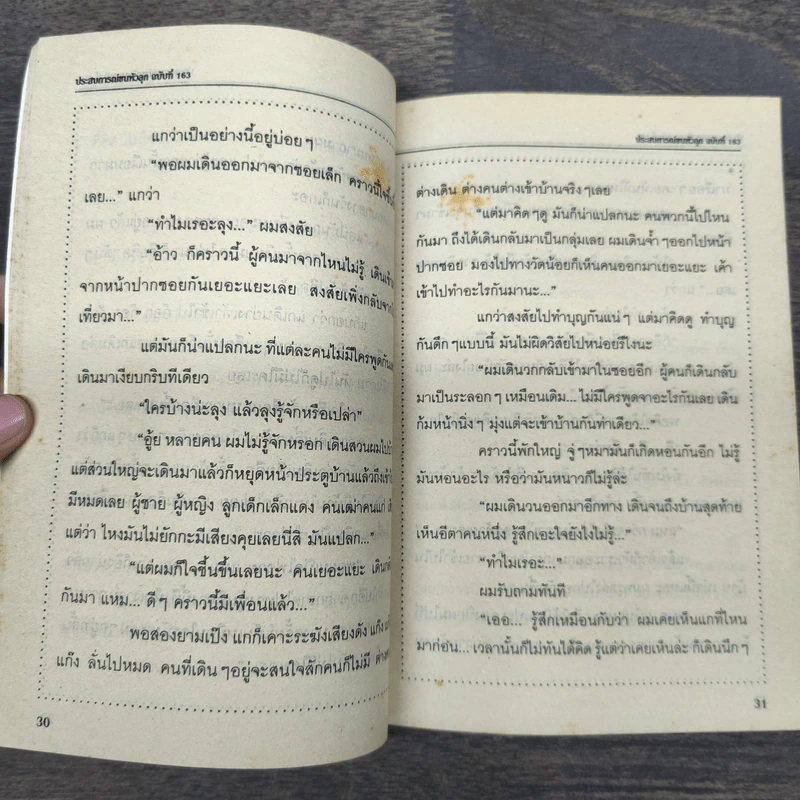 ประสบการณ์ขนหัวลุก ฉบับที่ 163
แกว่าเป็นอย่างนี้อยู่บ่อยๆ
“พอผมเดินออกมาจากซอยเล็ก คราวนี้
เลย...” แกว่า
“ทำไมเรอะลุง...” ผมสงสัย
“อ้าว ก็คราวนี้ ผู้คนมาจากไหนไม่รู้ เดิน
จากหน้าปากซอยกันเยอะแยะเลย สงสัยเพิ่งกลับจาก
เที่ยวมา...”
แต่มันก็น่าแปลกนะ ที่แต่ละคนไม่มีใครพูดกัน
เดินมาเงียบกริบทีเดียว
“ใครบ้างน่ะลุง แล้วลุงรู้จักหรือเปล่า”
“อู้ย หลายคน ผมไม่รู้จักหรอก เดินสวนผมไป
แต่ส่วนใหญ่จะเดินมาแล้วก็หยุดหน้าประตูบ้านแล้วถึง
มีหมดเลย ผู้ชาย ผู้หญิง ลูกเด็กเล็กแดง คนเฒ่าคนแก่
แต่ว่า ไหงมันไม่ยักกะมีเสียงคุยเลยนี่สิ มันแปลก...”
“แต่ผมก็ใจชื้นขึ้นเลยนะ คนเยอะแยะ เดิน
กันมา แหม... ดีๆ คราวนี้มีเพื่อนแล้ว...”
พอสองยามเป๊ง แกก็เคาะระฆังเสียงดัง แก๊ง
แก๊ง ลั่นไปหมด คนที่เดินๆอยู่จะสนใจสักคนก็ไม่มี
30
ประสบการณ์ขนหัวลุก ฉบับที่ 163
ต่างเดิน ต่างคนต่างเข้าบ้านจริงๆเลย
“แต่มาคิดๆดู มันก็น่าแปลกนะ คนพวกนี้ไปไหน
กันมา ถึงได้เดินกลับมาเป็นกลุ่มเลย ผมเดินจ้ำๆออกไปหน้า
ปากซอย มองไปทางวัดน้อยก็เห็นคนออกมาเยอะแยะ เค้า
เข้าไปทำอะไรกันมานะ...”
แกว่าสงสัยไปทำบุญกันแน่ๆ แต่มาคิดดู ทำบุญ
กันดึกๆแบบนี้ มันไม่ผิดวิสัยไปหน่อยรึไงนะ
“ผมเดินวกกลับเข้ามาในซอยอีก ผู้คนก็เดินกลับ
มาเป็นระลอกๆเหมือนเดิม...ไม่มีใครพูดจาอะไรกันเลย เดิน
ก้มหน้านิ่งๆ มุ่งแต่จะเข้าบ้านกันท่าเดียว...”
คราวนี้พักใหญ่ จู่ๆหมามันก็เกิดหอนกันอีก ไม่รู้
มันหอนอะไร หรือว่ามันหนาวก็ไม่รู้ล่ะ
“ผมเดินวนออกมาอีกทาง เดินจนถึงบ้านสุดท้าย
เห็นอีตาคนหนึ่ง รู้สึกเอะใจยังไงไม่รู้...”
“ทำไมเรอะ...”
ผมรีบถามทันที
“เออ... รู้สึกเหมือนกับว่า ผมเคยเห็นแกที่ไหน
มาก่อน... เวลานั้นก็ไม่ทันได้คิด รู้แต่ว่าเคยเห็นล่ะ ก็เดินนึกๆ
31